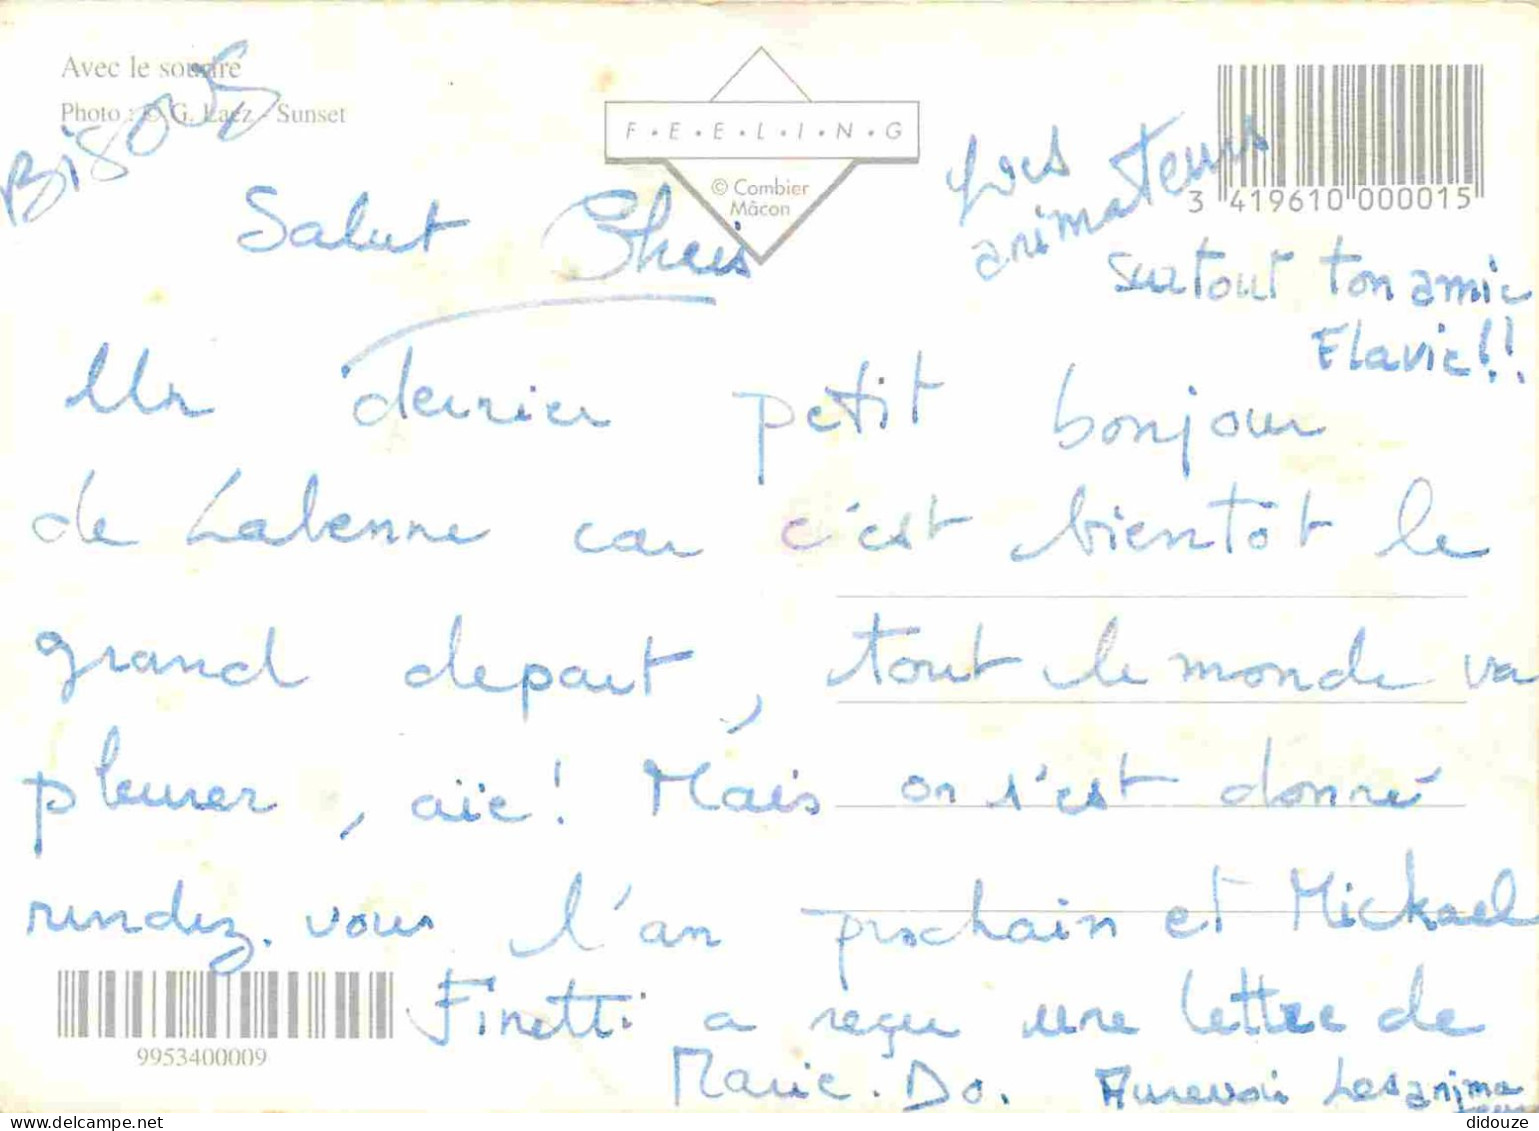 Avec le sourire
Photo : © G. Laez - Sunset
Bisous
F.E.E.L.I.N.G
© Combier
Mâcon
3 419610 000015
animateurs
surtout ton amie
Flavie!!
Salut Chris
Un dernier petit bonjour
de Labenne car c'est bientôt le
grand depart, tout le monde va
pleurer, aïe! Mais on s'est donné
rendez-vous l'an prochain et Mickael
Finetti a reçu une lettre de
Marie-Do. Aurevoir Les anima
teurs
9953400009
didouze